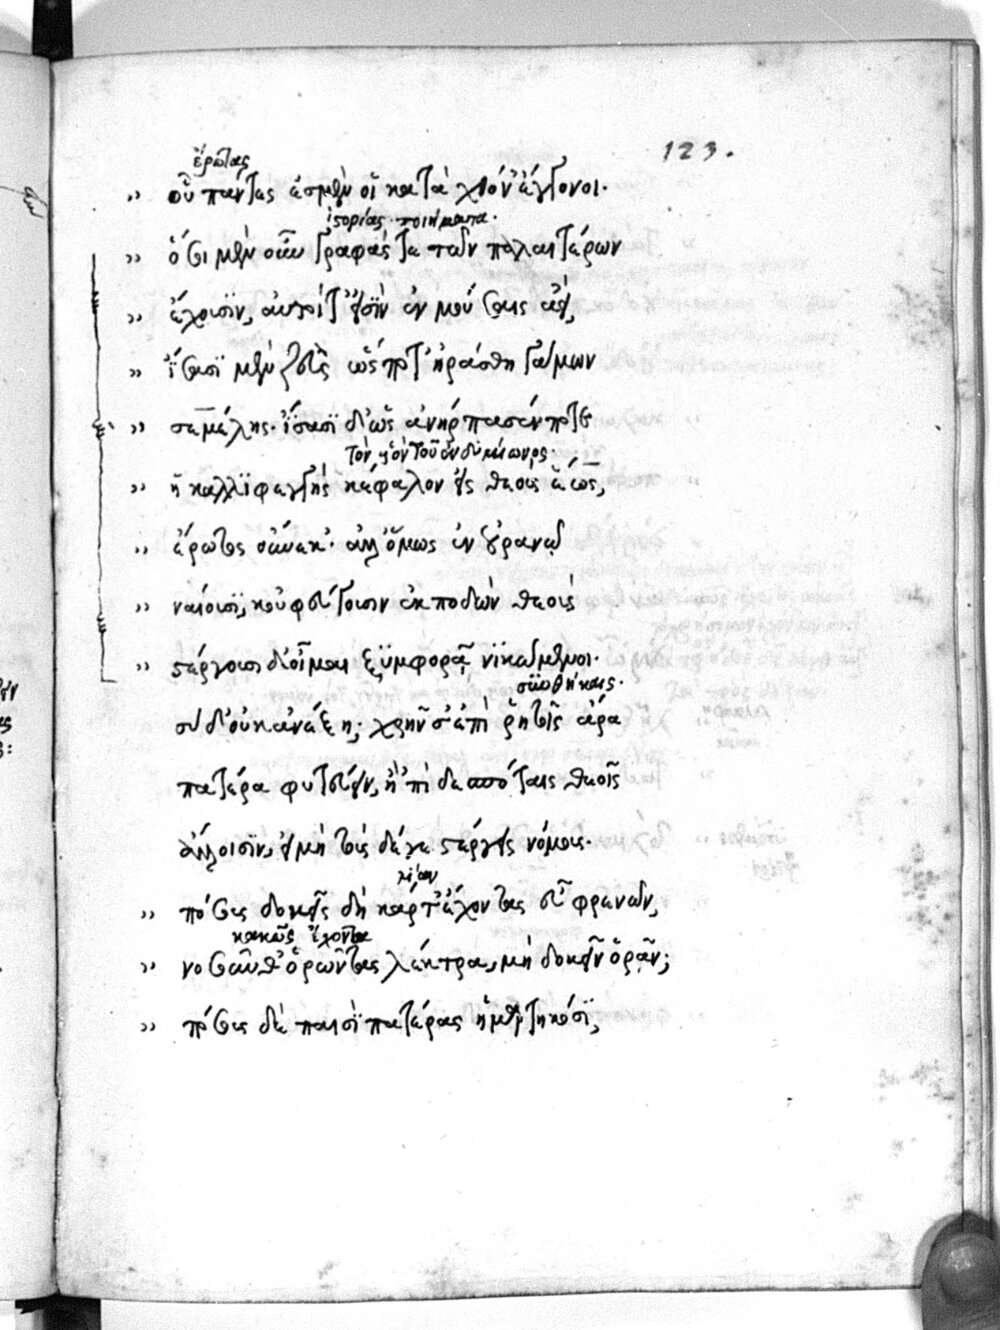 123.
ἔρωτας
οὗ πάντες ἐσμὲν οἱ κατὰ χθόν' ἔγγονοι.
ἱστορίας ποιήματα.
ὅσοι μὲν οὖν γραφάς τε τῶν παλαιτέρων
ἔχουσιν, αὐτοί τ' εἰσὶν ἐν μούσαις ἀεί,
ἴσασι μὲν ζεὺς ὥς ποτ' ἠράσθη γάμων
σεμέλης. ἴσασι δ' ὡς ἀνήρπασέν ποτε
τὸν υἱὸν τοῦ
ἡ καλλιφεγγὴς κέφαλον εἰς θεοὺς ἕως,
ἔρωτος οὕνεκ'. ἀλλ' ὅμως ἐν οὐρανῷ
ναίουσι, κοὐ φεύγουσιν ἐκποδὼν θεούς
στέργουσι δ' οἶμαι ξυμφορᾷ νικώμενοι.
συνθήκαις.
σὺ δ' οὐκ ἀνέξῃ; χρῆν σ' ἐπὶ ῥητοῖς ἄρα
πατέρα φυτεύειν, ἢ 'πὶ δεσπόταις θεοῖς
ἄλλοισιν, εἰ μὴ τούσδε γε στέργεις νόμους.
λίαν
πόσους δοκεῖς δὴ κάρτ' ἔχοντας εὖ φρενῶν,
κακῶς ἔχοντα
νοσοῦνθ' ὁρῶντας λέκτρα, μὴ δοκεῖν ὁρᾶν;
πόσους δὲ παισὶ πατέρας ἡμαρτηκόσι,